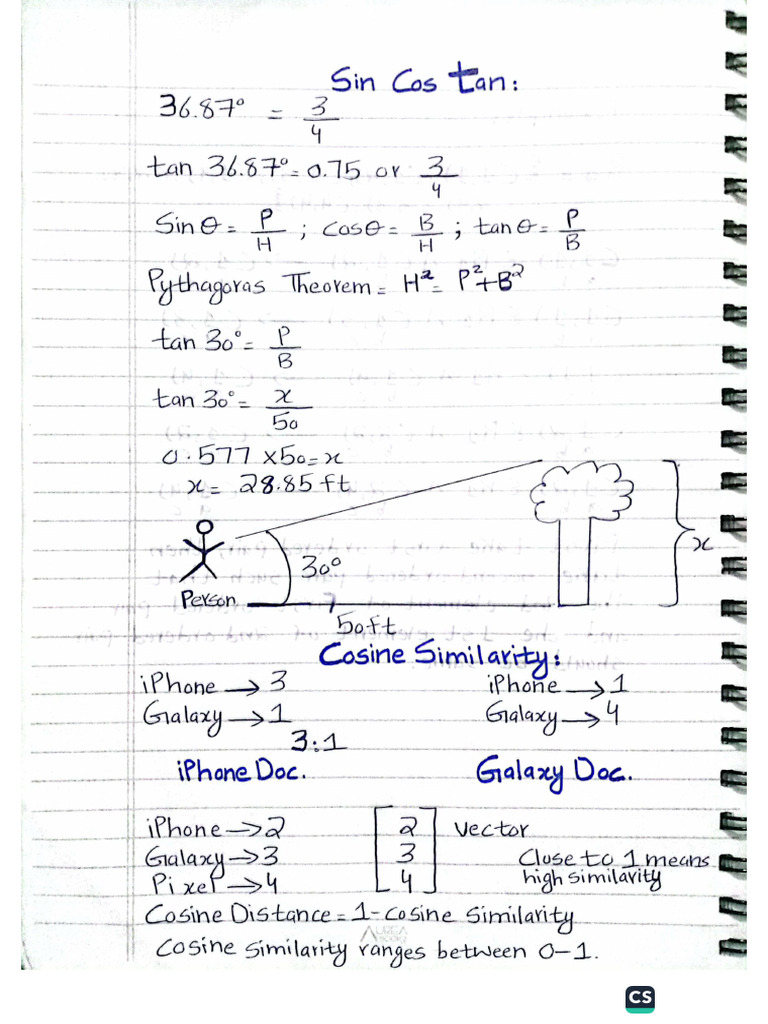 Sin Cos tan:
36.87° = 3/4
tan 36.87° = 0.75 or 3/4
Sinθ = P/H ; cosθ = B/H ; tanθ = P/B
Pythagoras Theorem = H² = P²+B²
tan 30° = P/B
tan 30° = x/50
0.577 x50 = x
x = 28.85 ft
30°
x
Person
50ft
Cosine Similarity:
iPhone → 3 iPhone → 1
Galaxy → 1 Galaxy → 4
3:1
iPhone Doc. Galaxy Doc.
iPhone → 2 [2 Vector
Galaxy → 3 3 Close to 1 means
Pixel → 4 4] high similarity
Cosine Distance = 1-cosine Similarity
Cosine similarity ranges between 0-1.
CS